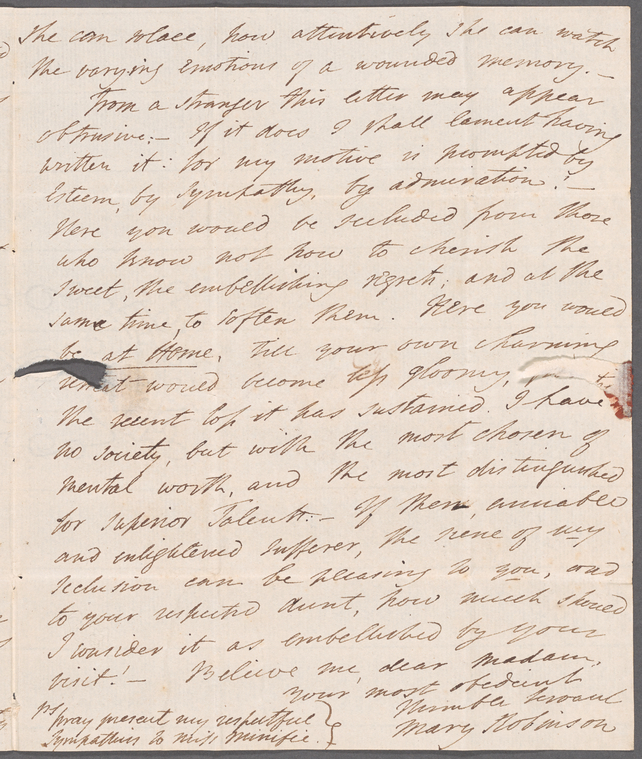 She can solace, how attentively she can watch
the varying emotions of a wounded memory.—
From a stranger this letter may appear
obtrusive:— If it does I shall lament having
written it: for my motive is prompted by
Esteem, by Sympathy, by admiration!—
Here you would be secluded from those
who know not how to cherish the
sweet, the embellishing regrets; and at the
same time, to soften them. Here you would
be at Home, till your own charming
retreat would become less gloomy,
the recent loss it has sustained. I have
no society, but with the most chosen of
mental worth, and the most distinguished
for superior Talents.— If then, amiable
and enlightened sufferer, the scene of my
seclusion can be pleasing to you, and
to your respected Aunt, how much should
I consider it as embellished by your
visit!— Believe me, dear Madam,
your most obedient
Humble Servant
Mary Robinson
PS/ pray present my respectful
Sympathies to Miss Minifie.